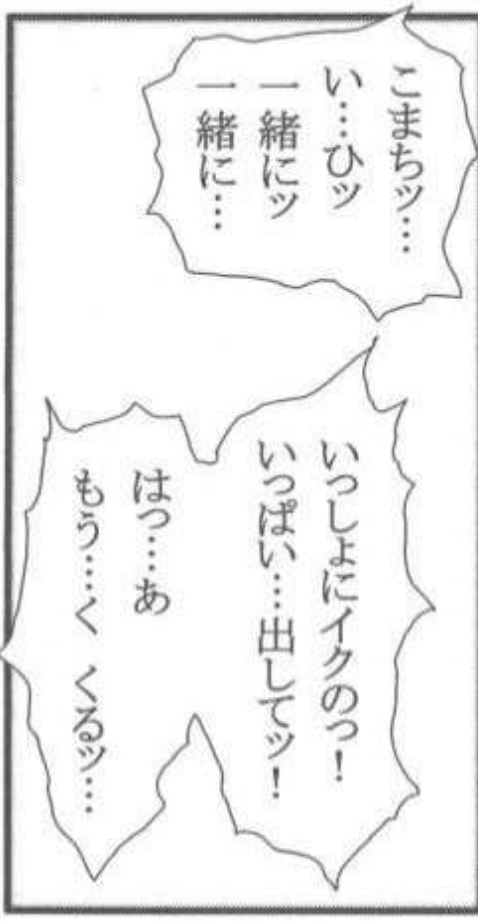 こまちッ…
い…ひッ
一緒にッ
一緒に…
いっしょにイクのっ！
いっぱい…出してッ！
はっ…あ
もう…く くるッ…